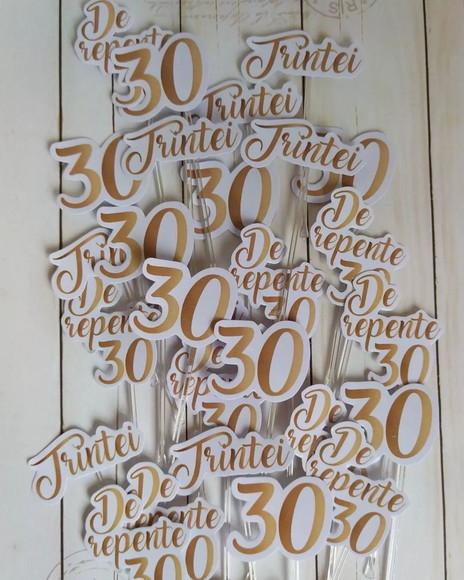 De
repente
30
Trintei
Trintei
30
Trintei
Trintei
30
30
De
repente
30
Trintei
30
De
repente
30
De
repente
30
De
repente
30
30
De
repente
30
De
repente
30
Trintei
Trintei
De
repente
30
De
De
repente
30
30